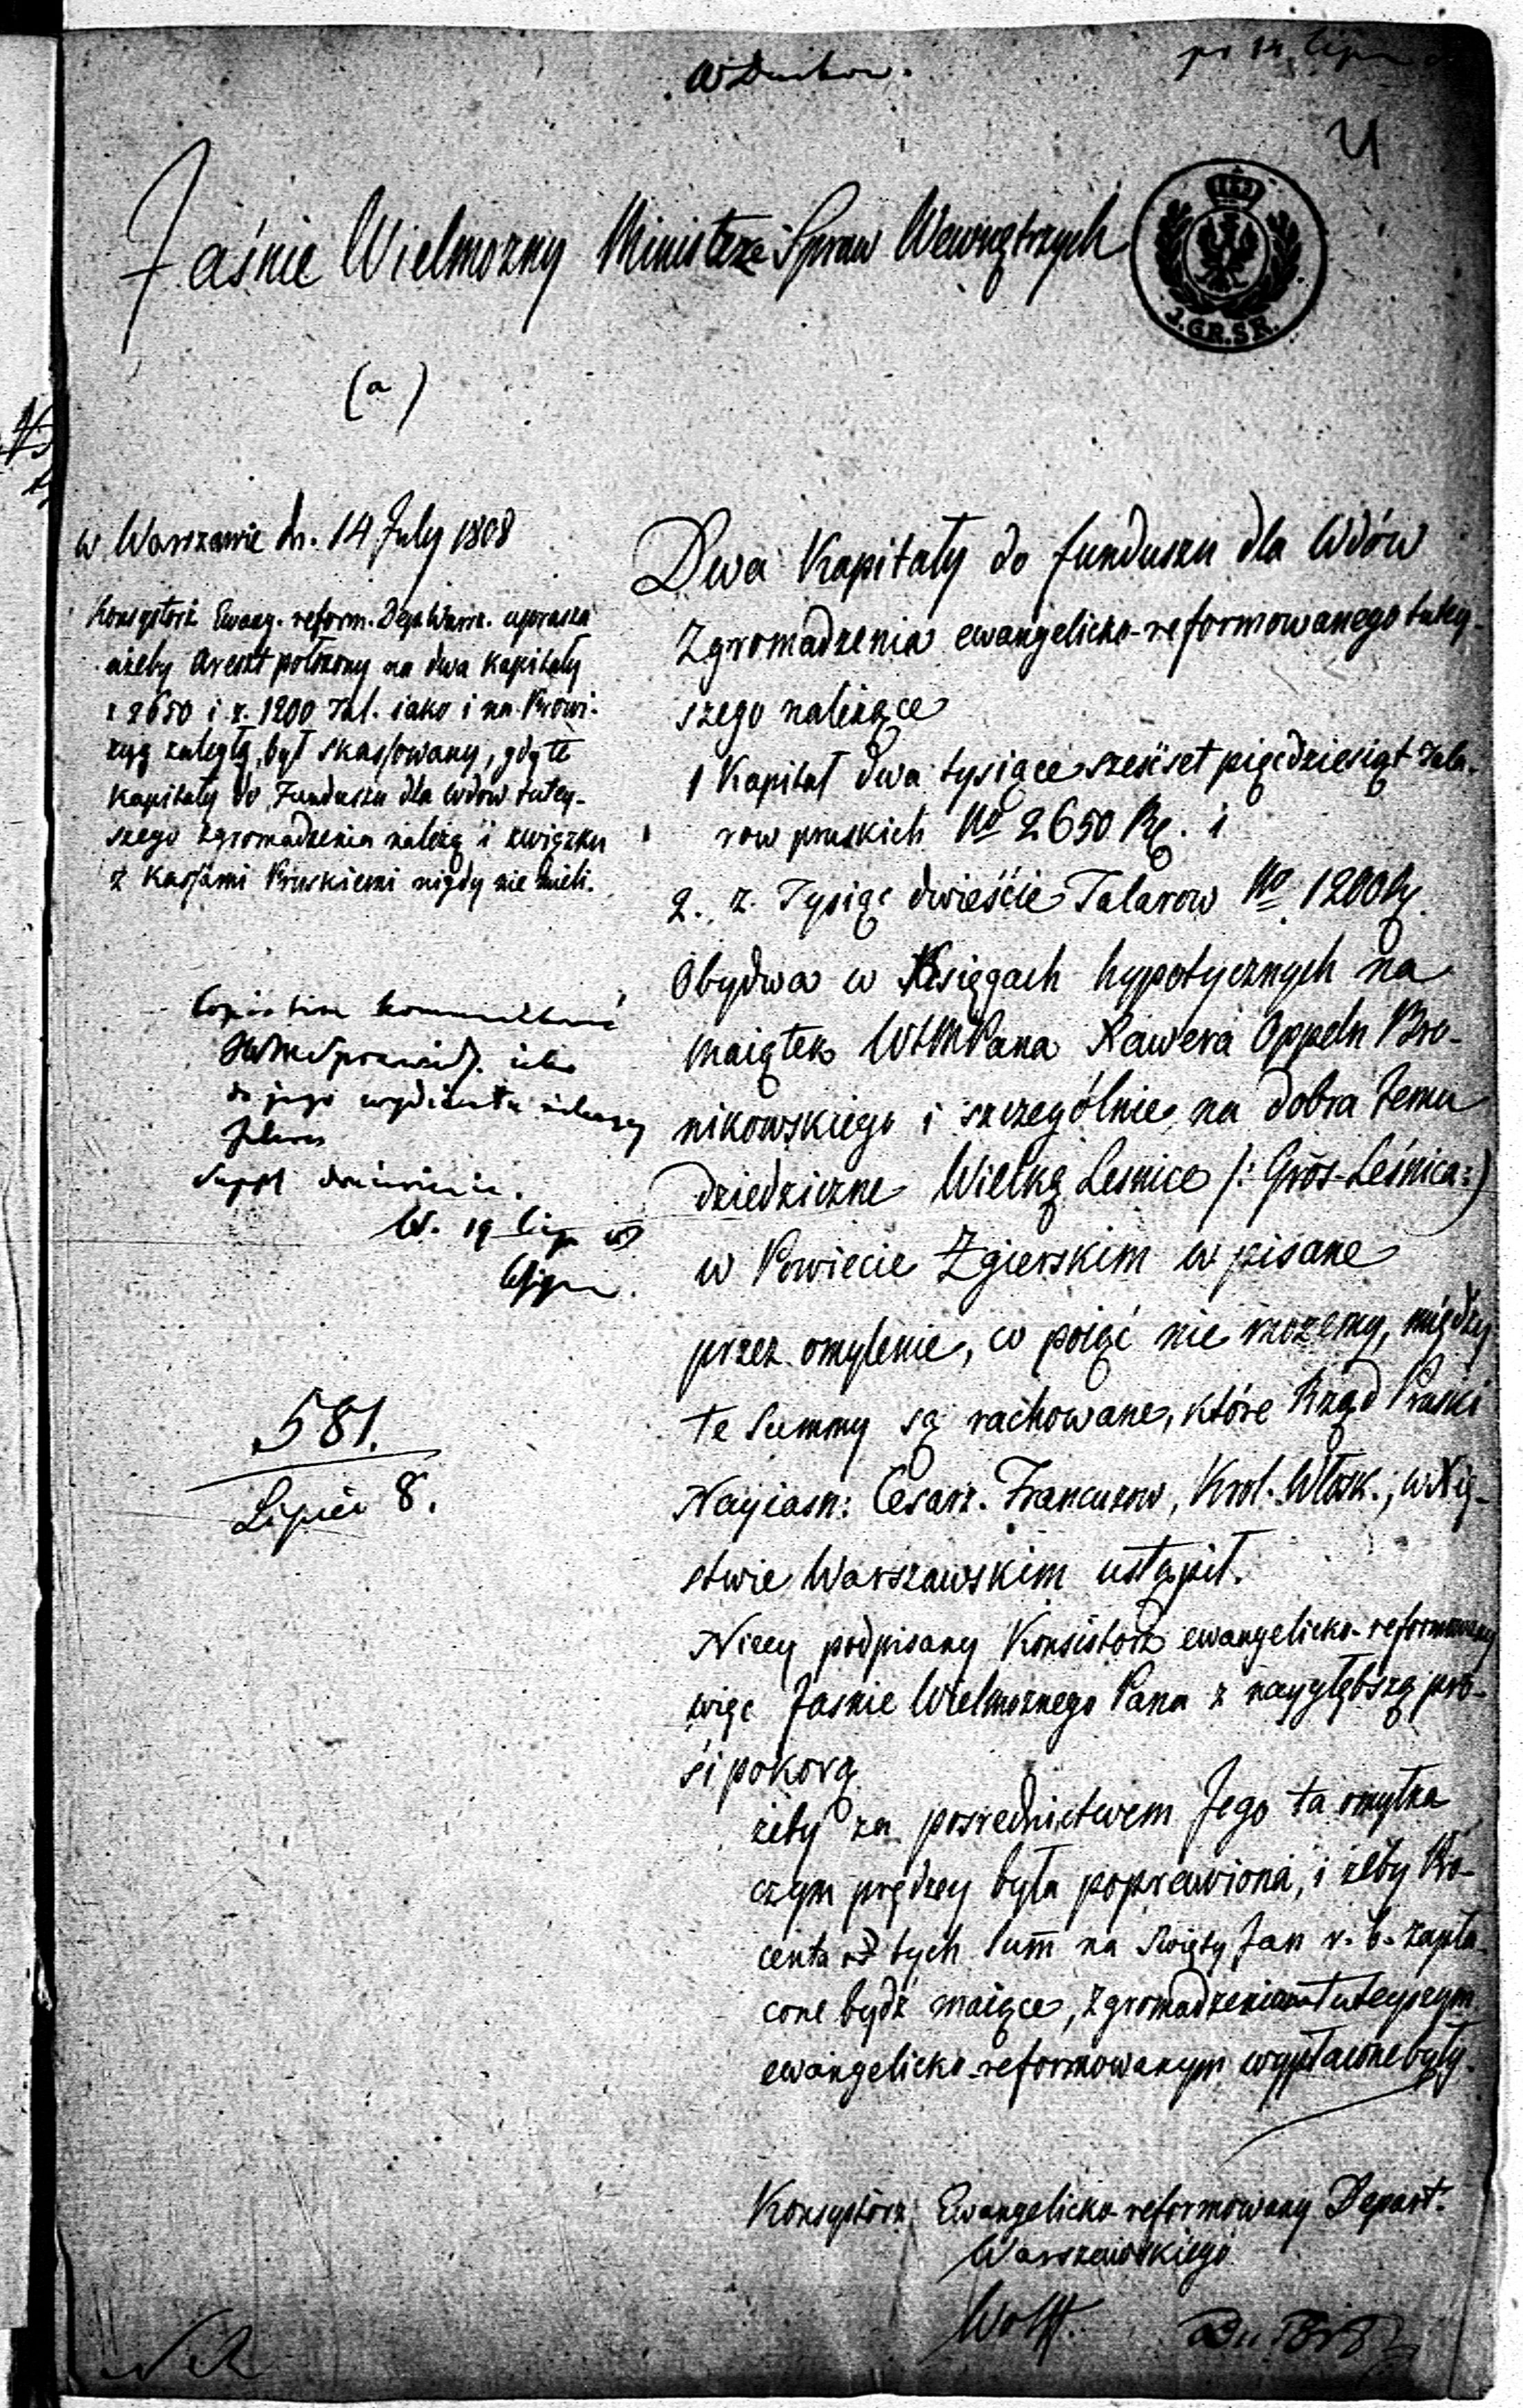 Jaśnie Wielmozny Ministrze Spraw Wewnętrznych
J.GR.SR.
(a)
w Warszawie dn. 14 July 1808
Konsystorz Ewang. reform. Dep. Warsz. uprasza
ażeby Areszt położony na dwa kapitały
z 2650 i z. 1200 Tal. iako i na Prowi-
zyą zaległą, był skassowany, gdy te
Kapitały do Funduszu dla wdow tutey-
szego zgromadzenia należą i związku
z Kassami Pruskiemi nigdy nie mieli.
W. 19 lip
581.
Lipiec 8.
Dwa Kapitały do funduszu dla Wdów
Zgromadzenia ewangelicko-reformowanego tutey-
szego należące
1 Kapitał dwa tysiące sześćset pięćdziesiąt Tala-
row pruskich No 2650 Rt. i
2. z. Tysiąc dwieście Talarow No 1200 Rt.
Obydwa w Księgach hypotycznych na
maiątek WJMPana Xawera Oppeln Bro-
nikowskiego i szczególnie na dobra temu
dziedziczne Wielką Lesnice /: Gros-Leśnica :)
w Powiecie Zgierskim wpisane
przez omylenie, co poiąć nie możemy, między
te Summy są rachowane, które Rząd Pruski
Nayiasn: Cesarz. Francuzow, Krol. Włosk., w Xię-
stwie Warszawskim ustąpił.
Nizey podpisany Konsistorz ewangelicko-reformowany
więc Jasnie Wielmoznego Pana z naygłębszą pro-
si pokorą
żeby za posrednictwem Jego ta omyłka
czym prędzey była poprawiona, i żeby Pro-
centa od tych Summ na Swięty Jan r. b. zapła-
cone bydź maiące, zgromadzeniom tuteyszym
ewangelicko-reformowanym wypłacone były.
Konsystorz Ewangelicko-reformowany Depart.
Warszawskiego
Wolff.